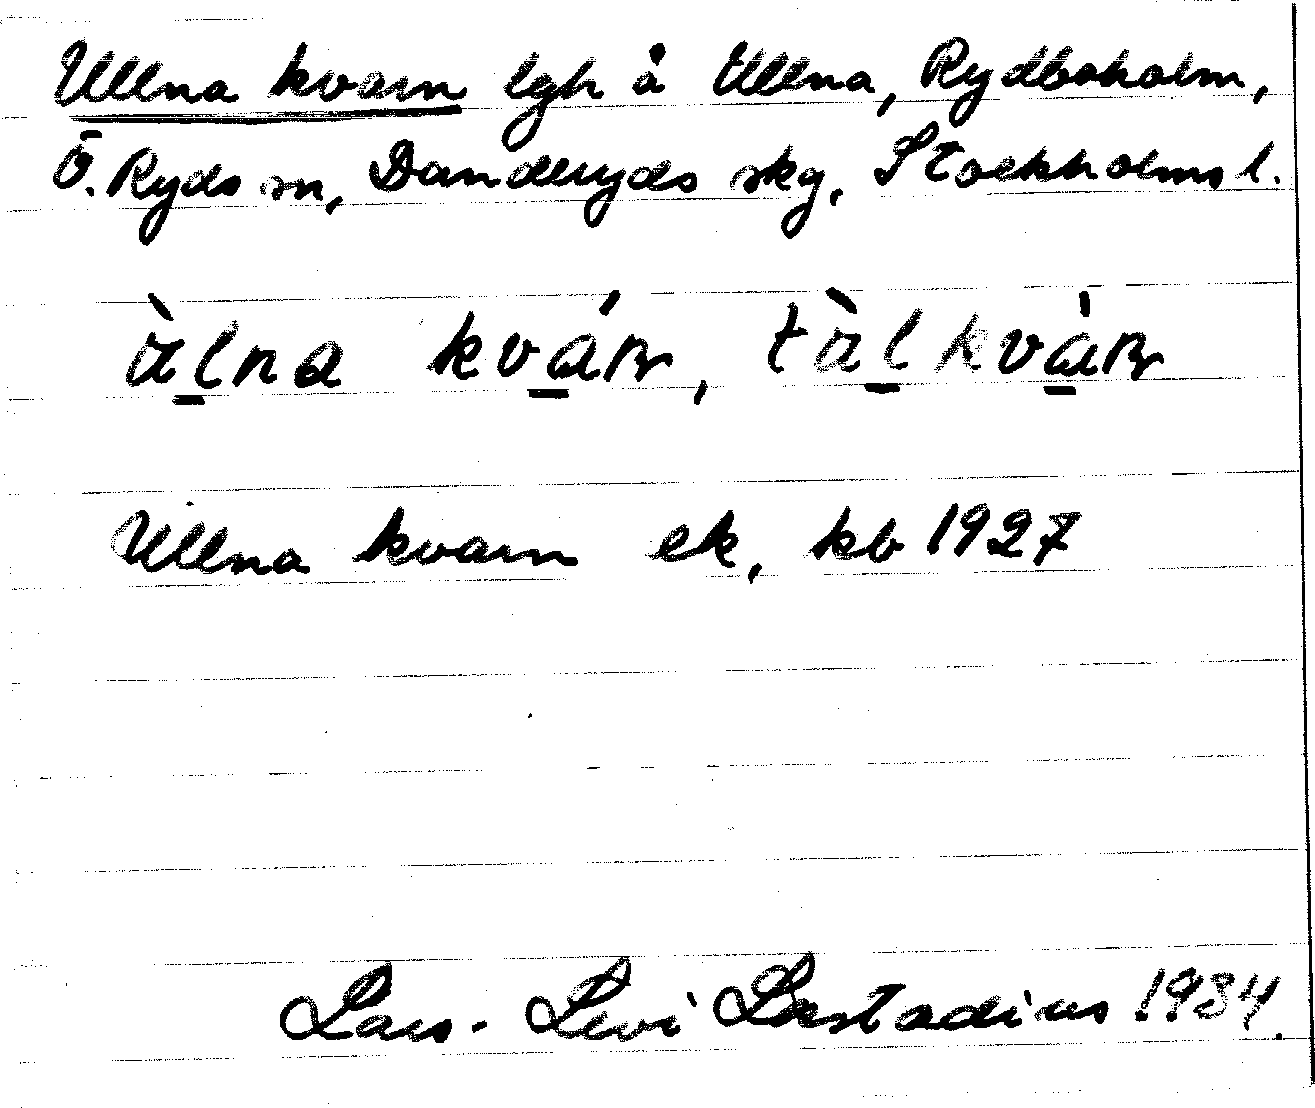 Ullna kvarn lgh å Ullna, Rydboholm,
Ö. Ryds sn, Danderyds skg, Stockholms l.
àl̠na kvá̠ɴ, tàl̠kvà̠ɴ
Ullna kvarn ek, kb 1927
Lars-Levi Læstadius 1934.